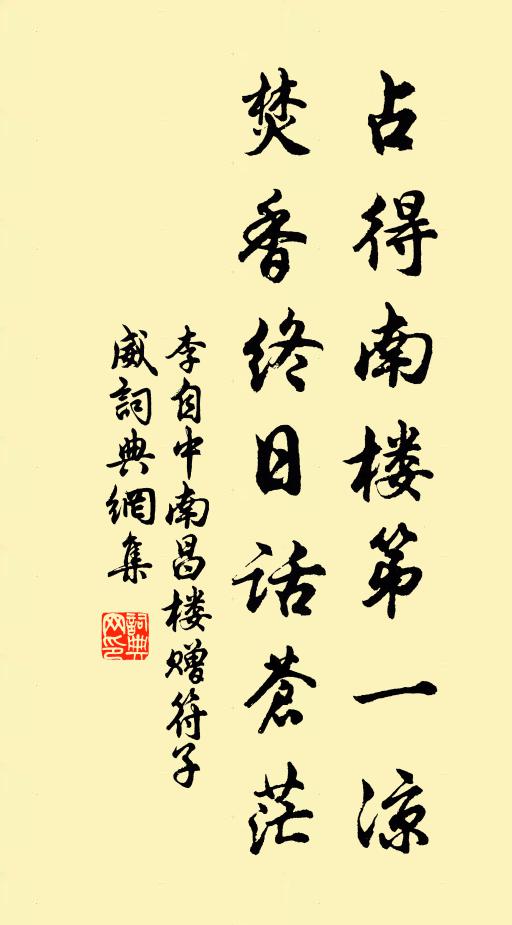 占得南楼第一凉
焚香终日话蒼茫
李自中南昌楼赠符子
威詞典網集
詞典网印